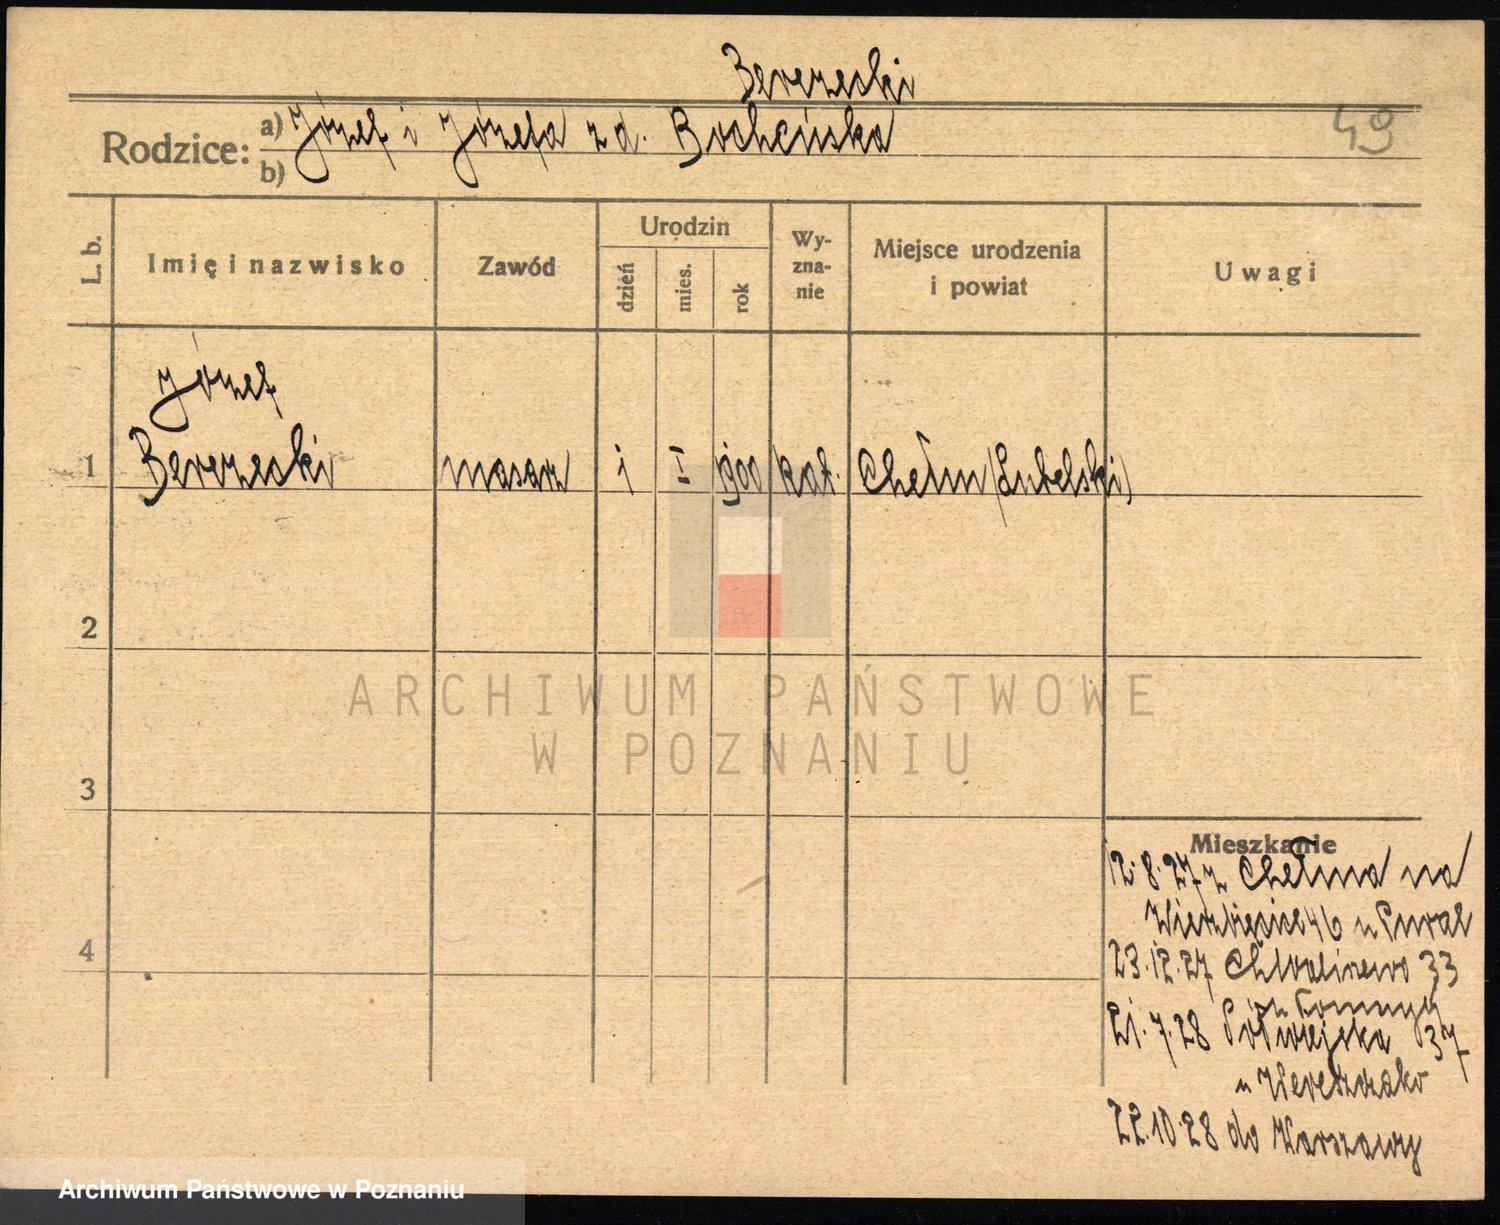 Berezecki
Rodzice: a) Józef i Józefa z d. Bocheńska
b)
49
L. b.
Imię i nazwisko
Zawód
Urodzin
dzień
mies.
rok
Wy-
zna-
nie
Miejsce urodzenia
i powiat
Uwagi
Józef
1 Berezecki masarz 1 I 1900 kat. Chełm (Lubelski)
2
3
4
Mieszkanie
12.8.27 z Chełma na
Wierzbięcice 46 u
23.12.27 Chwaliszewo 33
u
21.7.28 Półwiejska 37
u Wereszzako
22.10.28 do Warszawy
ARCHIWUM PAŃSTWOWE
W POZNANIU
Archiwum Państwowe w Poznaniu